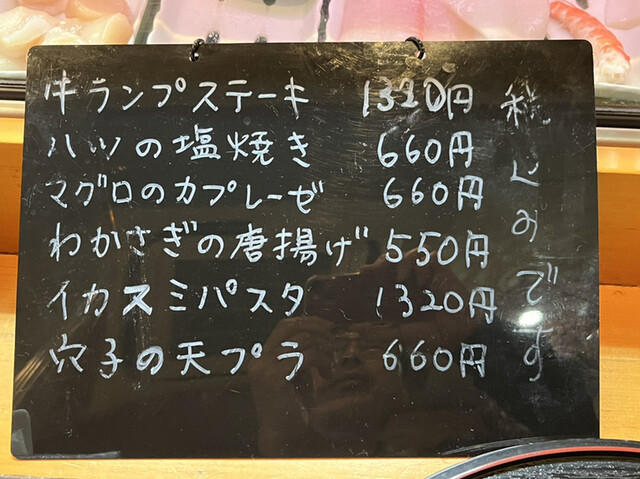 牛ランプステーキ 1320円
ハツの塩焼き 660円
マグロのカプレーゼ 660円
わかさぎの唐揚げ 550円
イカスミパスタ 1320円
穴子の天プラ 660円
税込みです